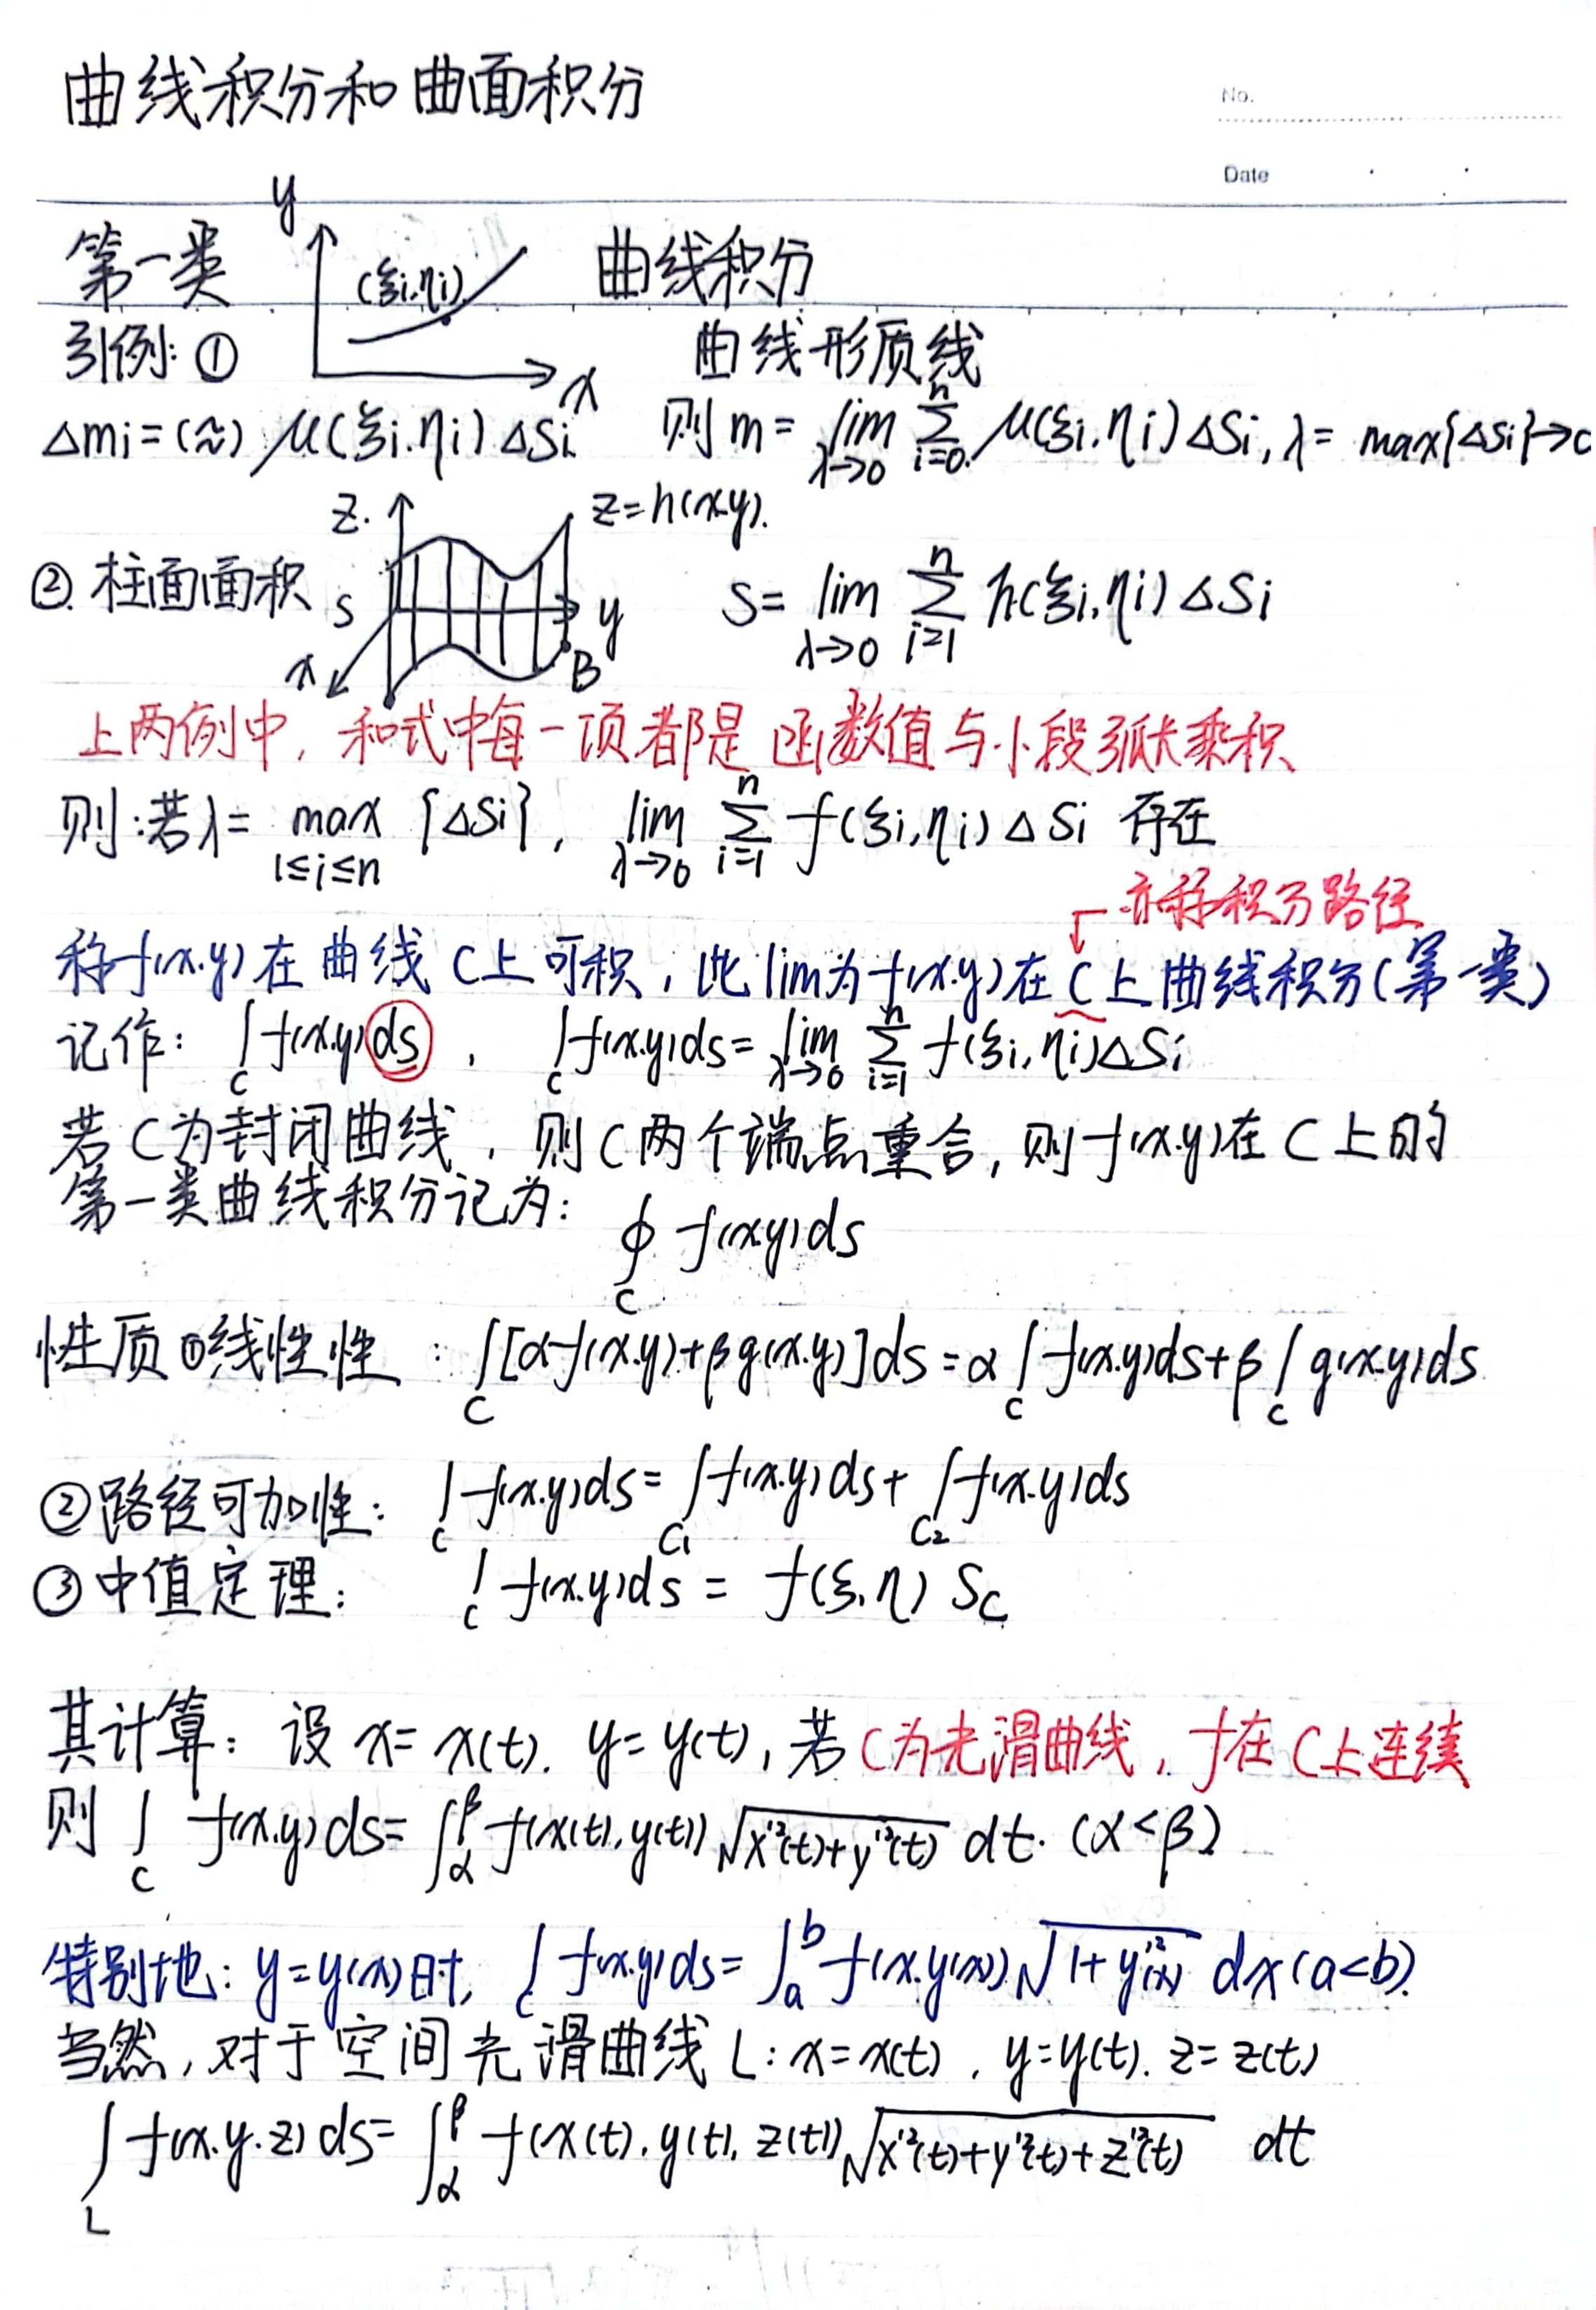 曲线积分和曲面积分
No.
Date
第一类 曲线积分
y (ξi,ηi) x
引例: ① 曲线形质线
Δmi=(≈) μ(ξi,ηi)ΔSi 则 m = lim λ→0 Σ i=0 n μ(ξi,ηi)ΔSi, λ= max{ΔSi}→0
z z=h(x,y).
②. 柱面面积 S y x B S= lim λ→0 Σ i=1 n h(ξi,ηi)ΔSi
上两例中, 和式中每一项都是函数值与小段弧长乘积
则:若λ= max 1≤i≤n {ΔSi}, lim λ→0 Σ i=1 n f(ξi,ηi)ΔSi 存在
亦称积分路径
称f(x.y)在曲线C上可积, 此lim为f(x.y)在C上曲线积分(第一类)
记作: ∫C f(x.y)ds , ∫C f(x.y)ds= lim λ→0 Σ i=1 n f(ξi,ηi)ΔSi
若C为封闭曲线, 则C两个端点重合, 则f(x.y)在C上的
第一类曲线积分记为:
∮C f(x.y)ds
性质①线性性: ∫C [αf(x.y)+βg(x.y)]ds=α∫C f(x.y)ds+β∫C g(x.y)ds
②路径可加性: ∫C f(x.y)ds= ∫C₁ f(x.y)ds+ ∫C₂ f(x.y)ds
③中值定理: ∫C f(x.y)ds = f(ξ.η) Sc
其计算: 设 x= x(t). y= y(t), 若C为光滑曲线, f在C上连续
则 ∫C f(x.y)ds= ∫α^β f(x(t),y(t))√(x'²(t)+y'²(t)) dt. (α<β)
特别地: y=y(x)时, ∫C f(x.y)ds= ∫a^b f(x.y(x))√(1+y'²(x)) dx(a<b).
当然, 对于空间光滑曲线L: x=x(t), y=y(t). z= z(t)
∫L f(x.y.z)ds= ∫α^β f(x(t).y(t), z(t))√(x'²(t)+y'²(t)+z'²(t)) dt